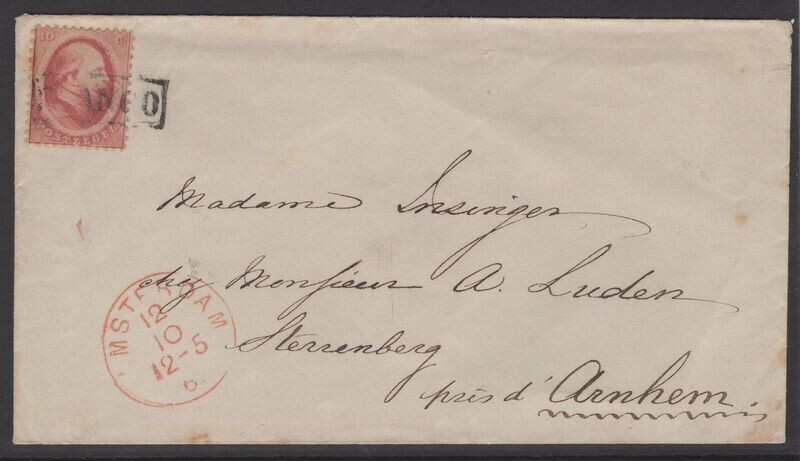 10 C
POSTZEGEL
Madame Insinger
chez Monsieur A. Luden
Sterrenberg
près d'Arnhem.
AMSTERDAM
12
10
12-5
6